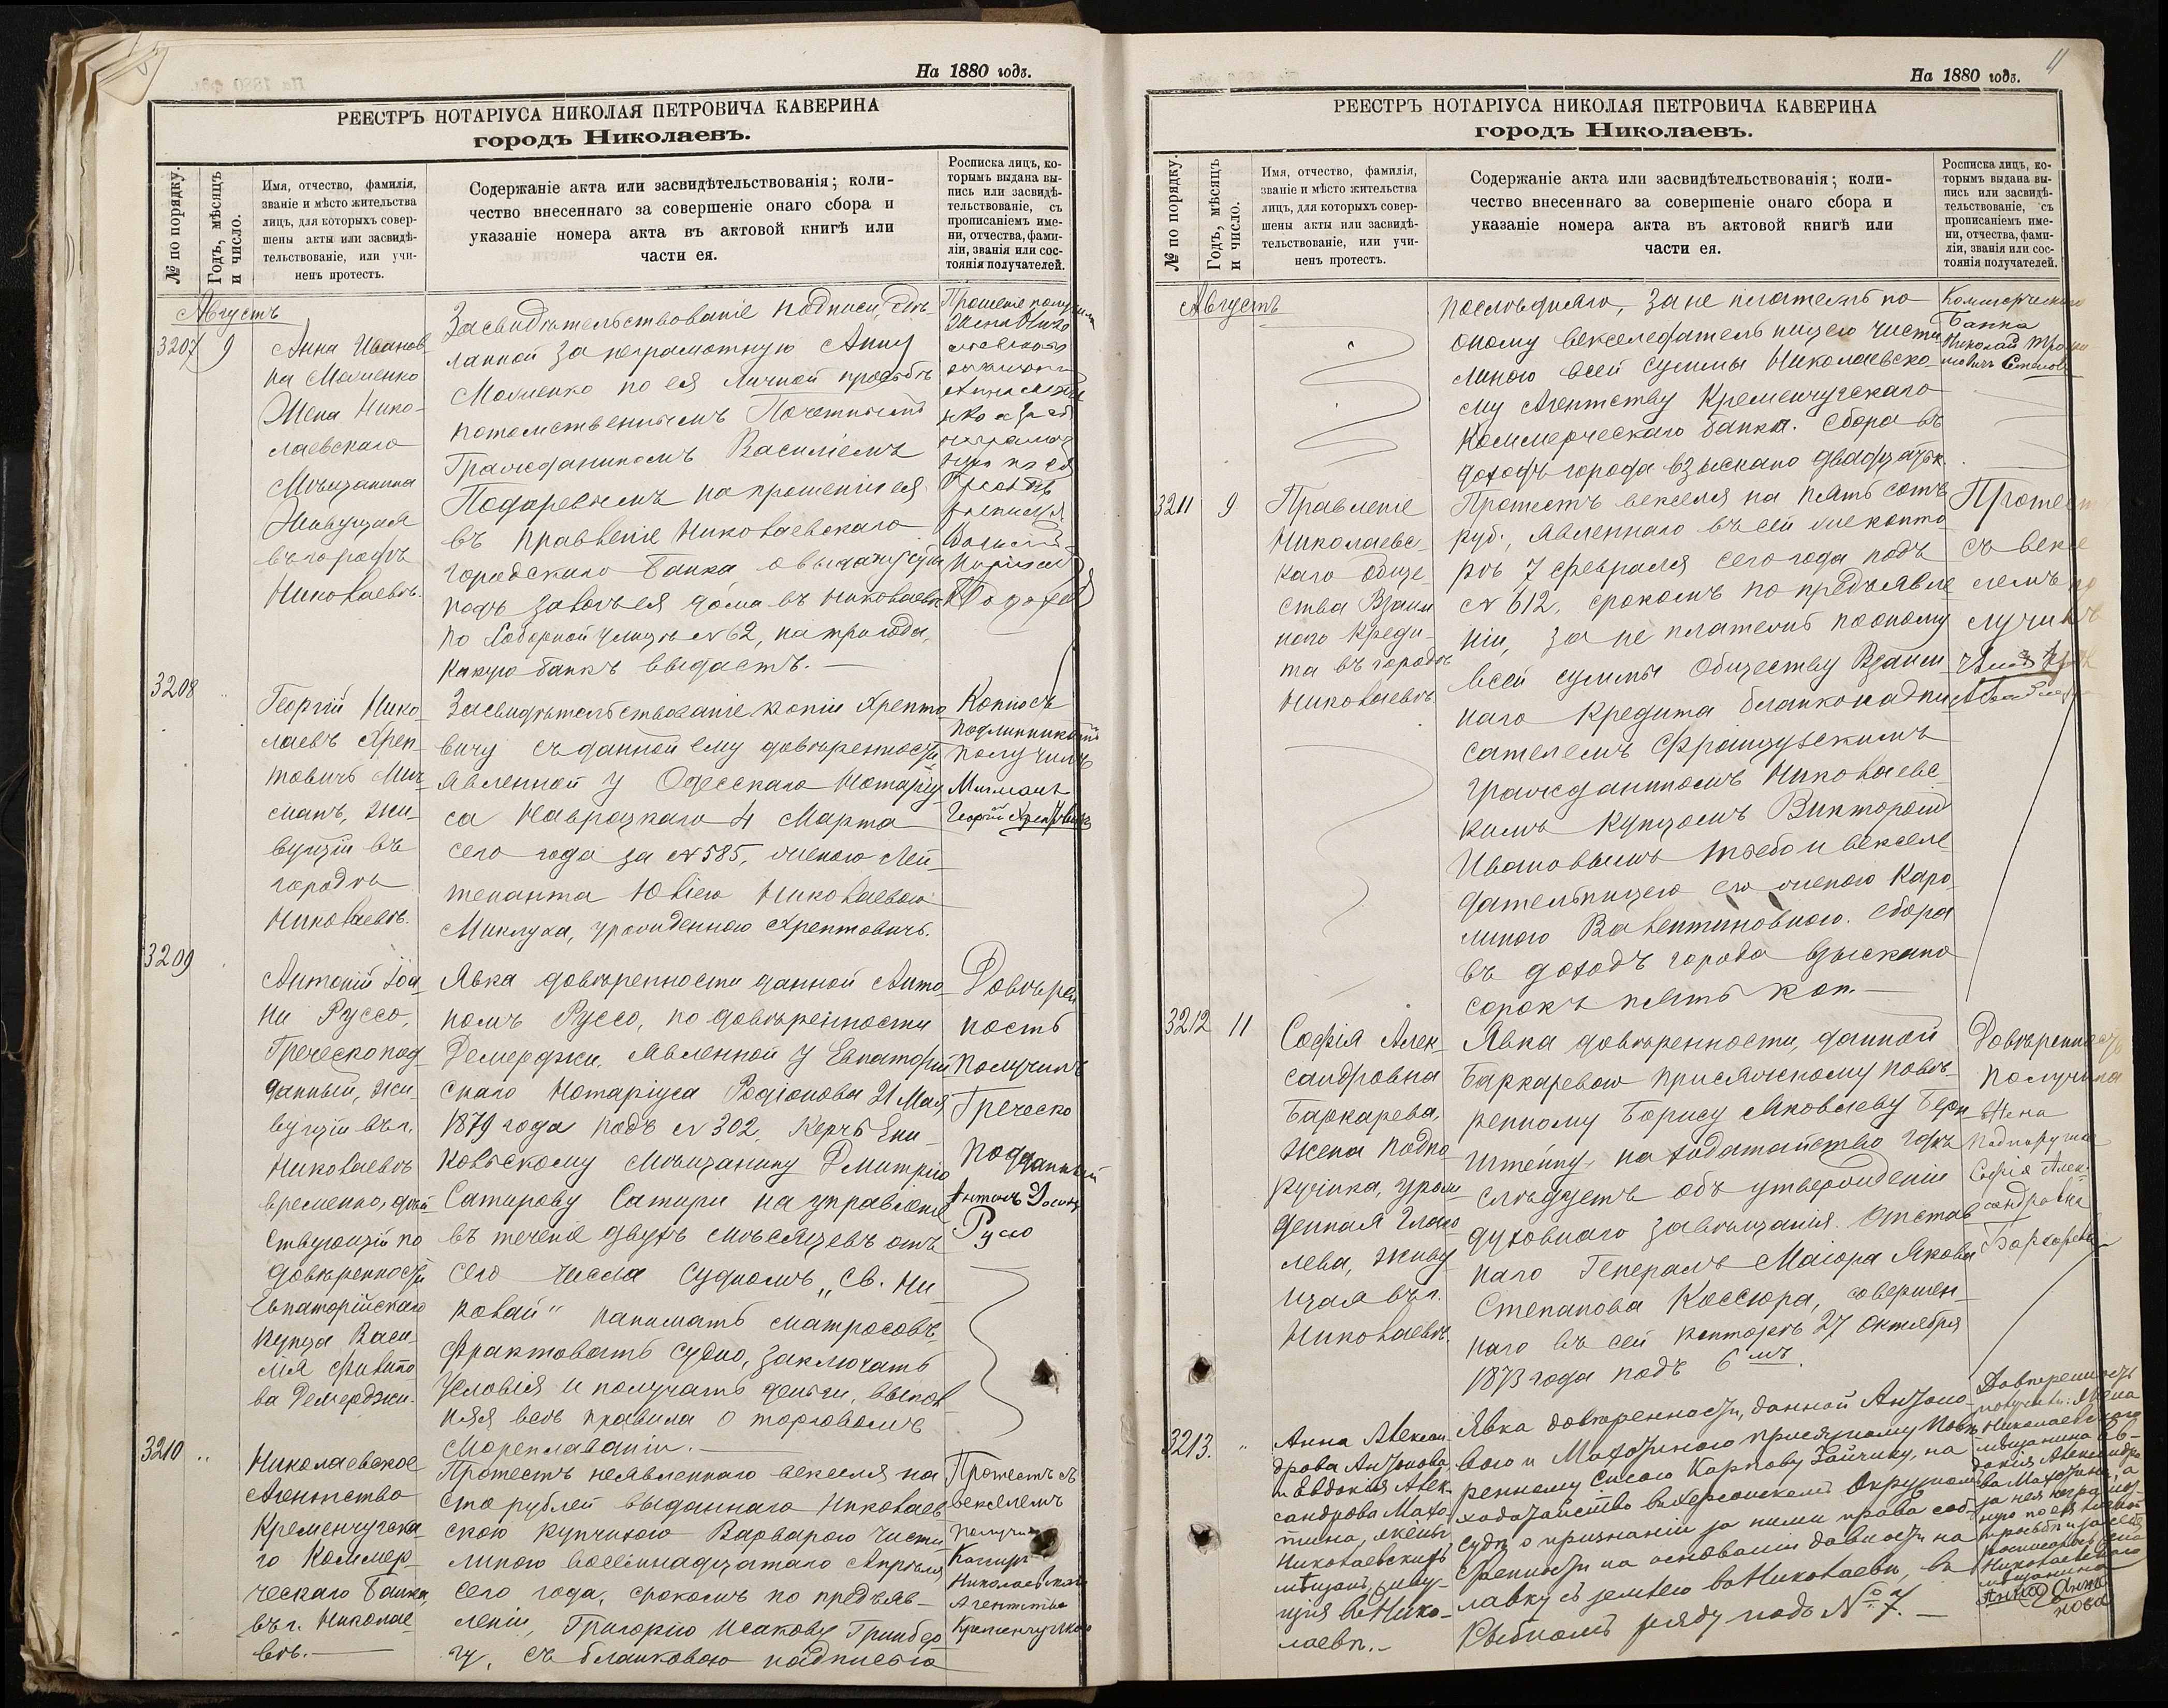 На 1880 годъ.
РЕЕСТРЪ НОТАРІУСА НИКОЛАЯ ПЕТРОВИЧА КАВЕРИНА
городъ Николаевъ.
№ по порядку.
Годъ, мѣсяцъ
и число.
Имя, отчество, фамилія,
званіе и мѣсто жительства
лицъ, для которыхъ совер-
шены акты или засвидѣ-
тельствованіе, или учи-
ненъ протестъ.
Содержаніе акта или засвидѣтельствованія; коли-
чество внесеннаго за совершеніе онаго сбора и
указаніе номера акта въ актовой книгѣ или
части ея.
Росписка лицъ, ко-
торымъ выдана вы-
пись или засвидѣ-
тельствованіе, съ
прописаніемъ име-
ни, отчества, фами-
ліи, званія или сос-
тоянія получателей.
Августъ
3207
9
Анна Иванов-
на
Жена Нико-
лаевскаго
Мѣщанина
Живущая
въ городѣ
Николаевѣ.
Засвидѣтельствованіе подписи, сдѣ-
ланной за неграмотную Анну
по ея личной просьбѣ
потомственнымъ Почетнымъ
Гражданиномъ Василіемъ
на прошеніи ея
въ Правленіе Николаевскаго
городскаго Банка, о выдачѣ ссуды
подъ залогъ ея дома въ Николаевѣ
по Соборной улицѣ № 62, на три года,
какую банкъ выдастъ. —
Прошеніе получила
Жена Нико
лаевскаго
3208
Георгій Нико-
лаевъ Хреп-
товичъ Мич-
манъ, жи-
вущій въ
городѣ
Николаевѣ.
Засвидѣтельствованіе копіи Хрепто-
вичу съ данной ему довѣренности
явленной у Одесскаго Нотаріу-
са Навроцкаго 4 Марта
сего года за № 585, женою Лей-
тенанта Юліею Николаевою
Миклуха, урожденною Хрептовичъ.
Копію съ
подлинникомъ
получилъ
Мичманъ
Георгій Хрептовичъ
3209
Антоній Іоа-
ни Руссо,
Греческопод-
данный, жи-
вущій въ г.
Николаевѣ
временно, дѣй-
ствующій по
довѣренности
Евпаторійскаго
Купца Васи-
лія Филипо-
ва Демерджи.
Явка довѣренности данной Анто-
номъ Руссо, по довѣренности
Демерджи, явленной у Евпаторій-
скаго Нотаріуса Родіонова 21 Мая
1879 года подъ № 302, Керчь Ени-
кольскому Мѣщанину Дмитрію
Сатирову Сатири на управленіе
въ теченіе двухъ мѣсяцевъ отъ
сего числа судномъ „Св. Ни-
колай“ нанимать матросовъ,
фрактовать судно, заключать
условія и получать деньги, выпол-
няя всѣ правила о торговомъ
мореплаваніи. —
Довѣрен
ность
получилъ
Греческо
подданный
Антонъ
Руссо
3210
Николаевское
Агентство
Кременчугска-
го Коммер-
ческаго Банка,
въ г. Николае-
вѣ. —
Протестъ неявленнаго векселя на
сто рублей выданнаго Николаев-
скою купчихою Варварою Чисти-
линою восемнадцатаго Апрѣля
сего года, срокомъ по предъяв-
леніи, Григорію Исакову Гринбер-
гу, съ бланковою надписью
Протестъ съ
векселемъ
получилъ
Кассиръ
Николаевскаго
Агентства
Кременчугскаго
На 1880 годъ.
РЕЕСТРЪ НОТАРІУСА НИКОЛАЯ ПЕТРОВИЧА КАВЕРИНА
городъ Николаевъ.
№ по порядку.
Годъ, мѣсяцъ
и число.
Имя, отчество, фамилія,
званіе и мѣсто жительства
лицъ, для которыхъ совер-
шены акты или засвидѣ-
тельствованіе, или учи-
ненъ протестъ.
Содержаніе акта или засвидѣтельствованія; коли-
чество внесеннаго за совершеніе онаго сбора и
указаніе номера акта въ актовой книгѣ или
части ея.
Росписка лицъ, ко-
торымъ выдана вы-
пись или засвидѣ-
тельствованіе, съ
прописаніемъ име-
ни, отчества, фами-
ліи, званія или сос-
тоянія получателей.
Августъ
послѣдняго, за не платежъ по
оному векселедательницею Чисти-
линою всей суммы Николаевско-
му Агентству Кременчугскаго
Коммерческаго банка. Сбора въ
доходъ города взыскано двадцать к.
Коммерческаго
Банка
Николай
3211
9
Правленіе
Николаевс-
каго Обще-
ства Взаим-
наго Креди-
та въ городѣ
Николаевѣ
Протестъ векселя на пять сотъ
руб., явленнаго въ сей же конто-
рѣ 7 февраля сего года подъ
№ 612, срокомъ по предъявле-
ніи, за не платежъ по оному
всей суммы Обществу Взаим-
наго Кредита бланконадпи-
сателемъ Французскимъ
гражданиномъ Николаевс-
кимъ Купцомъ Викторомъ
Ивановымъ и векселе-
дательницею его женою Каро-
линою Валентиновною. Сбора
въ доходъ города взыскано
сорокъ пять коп. —
Протестъ
съ вексе
лемъ по
лучилъ
3212
11
Софія Алек-
сандровна
Баркарева,
жена Подпо-
ручика, урож-
денная Глаго
лева, живу
щая въ г.
Николаевѣ.
Явка довѣренности, данной
Баркаревою присяжному повѣ-
ренному Борису Яковлеву Берн-
штейну, на ходатайство гдѣ
слѣдуетъ объ утвержденіи
духовнаго завѣщанія Отстав-
наго Генералъ Маіора Якова
Степанова Коссюра, совершен-
наго въ сей конторѣ 27 октября
1873 года подъ 6мъ.
Довѣренность
получила
Жена
Подпоручика
Софія Алек-
сандровна
Баркарева
3213.
Анна Алексан-
дрова Антонова
и Евдокія Алек-
сандрова Махо-
тина, жены
Николаевскихъ
мѣщанъ, живу-
щія въ Нико-
лаевѣ. —
Явка довѣренности, данной Антоно-
вою и Махотиною присяжному Повѣ-
ренному Сысою Карпову Зайчику, на
ходатайство въ Херсонскомъ Окружномъ
Судѣ о признаніи за ними права соб-
ственности на основаніи давности на
лавку съ землею въ Николаевѣ, въ
Рыбномъ ряду подъ № 7. —
Довѣренность
получили: Жена
Николаевскаго
мѣщанина Ев-
докія Александро
ва Махотина, а
за нея неграмот-
ную по ея личной
просьбѣ и за себя
росписалась жена
Николаевскаго
мѣщанина
Анна Анто
нова